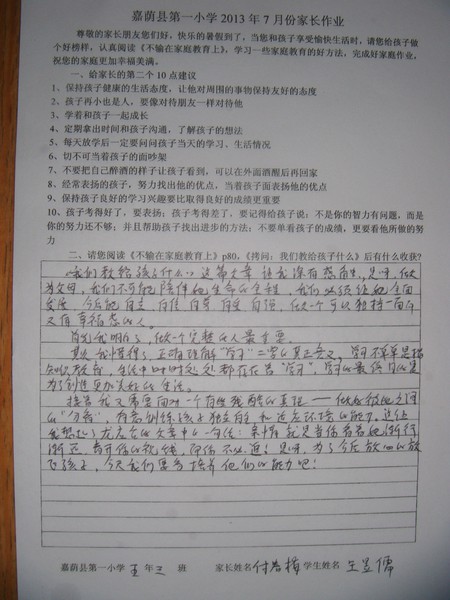 嘉荫县第一小学 2013 年 7 月份家长作业
尊敬的家长朋友您们好,快乐的暑假到了,当您和孩子享受愉快生活时,请您给孩子做
个好榜样,认真阅读《不输在家庭教育上》,学习一些家庭教育的好方法,完成好家庭作业,
祝您的家庭更加幸福美满。
一、给家长的第二个 10 点建议
1、保持孩子健康的生活态度,让他对周围的事物保持友好的态度
2、孩子再小也是人,要像对待朋友一样对待他
3、学着和孩子一起成长
4、定期拿出时间和孩子沟通,了解孩子的想法
5、每天放学后一定要问问孩子当天的学习、生活情况
6、切不可当着孩子的面吵架
7、不要把自己醉酒的样子让孩子看到,可以在外面酒醒后再回家
8、经常表扬的孩子,努力找出他的优点,当着孩子面表扬他的优点
9、保持孩子良好的学习兴趣要比取得良好的成绩更重要
10、孩子考得好了,要表扬;孩子考得差了,要记得给孩子说:不是你的智力有问题,而是
你的努力还不够;并且帮助孩子找出进步的方法;不要单看孩子的成绩,更要看他所做的努
力
二、请您阅读《不输在家庭教育上》p80,《拷问:我们教给孩子什么》后有什么收获?
《我们教给孩子什么》这篇文章 让我深有感触,是呀,做
为父母,我们不可能陪伴他生命的全程,我们必须让他全面
发展,今后能自立 自信 自尊 自强,做一个可以独挡一面
又有幸福感的人。
首先我明白了,做一个完整的人最重要.
其次 我懂得了 正确理解"学习"二字的真正含义,学习不单单是指
知识教育,生活中时时处处都存在着"学习",学习的最终目的是
为了创造更加美好的生活。
接着我又需要面对一个有些残酷的真理——
的"分离" 有意训练孩子独立的 能力,这让
我想起了龙应台的文章中的一句话:
是呀,为了今后放心的放
飞孩子,今天我们要多培养他们的能力吧!
嘉荫县第一小学 五 年 三 班 家长姓名 付 梅 学生姓名 王昱儒